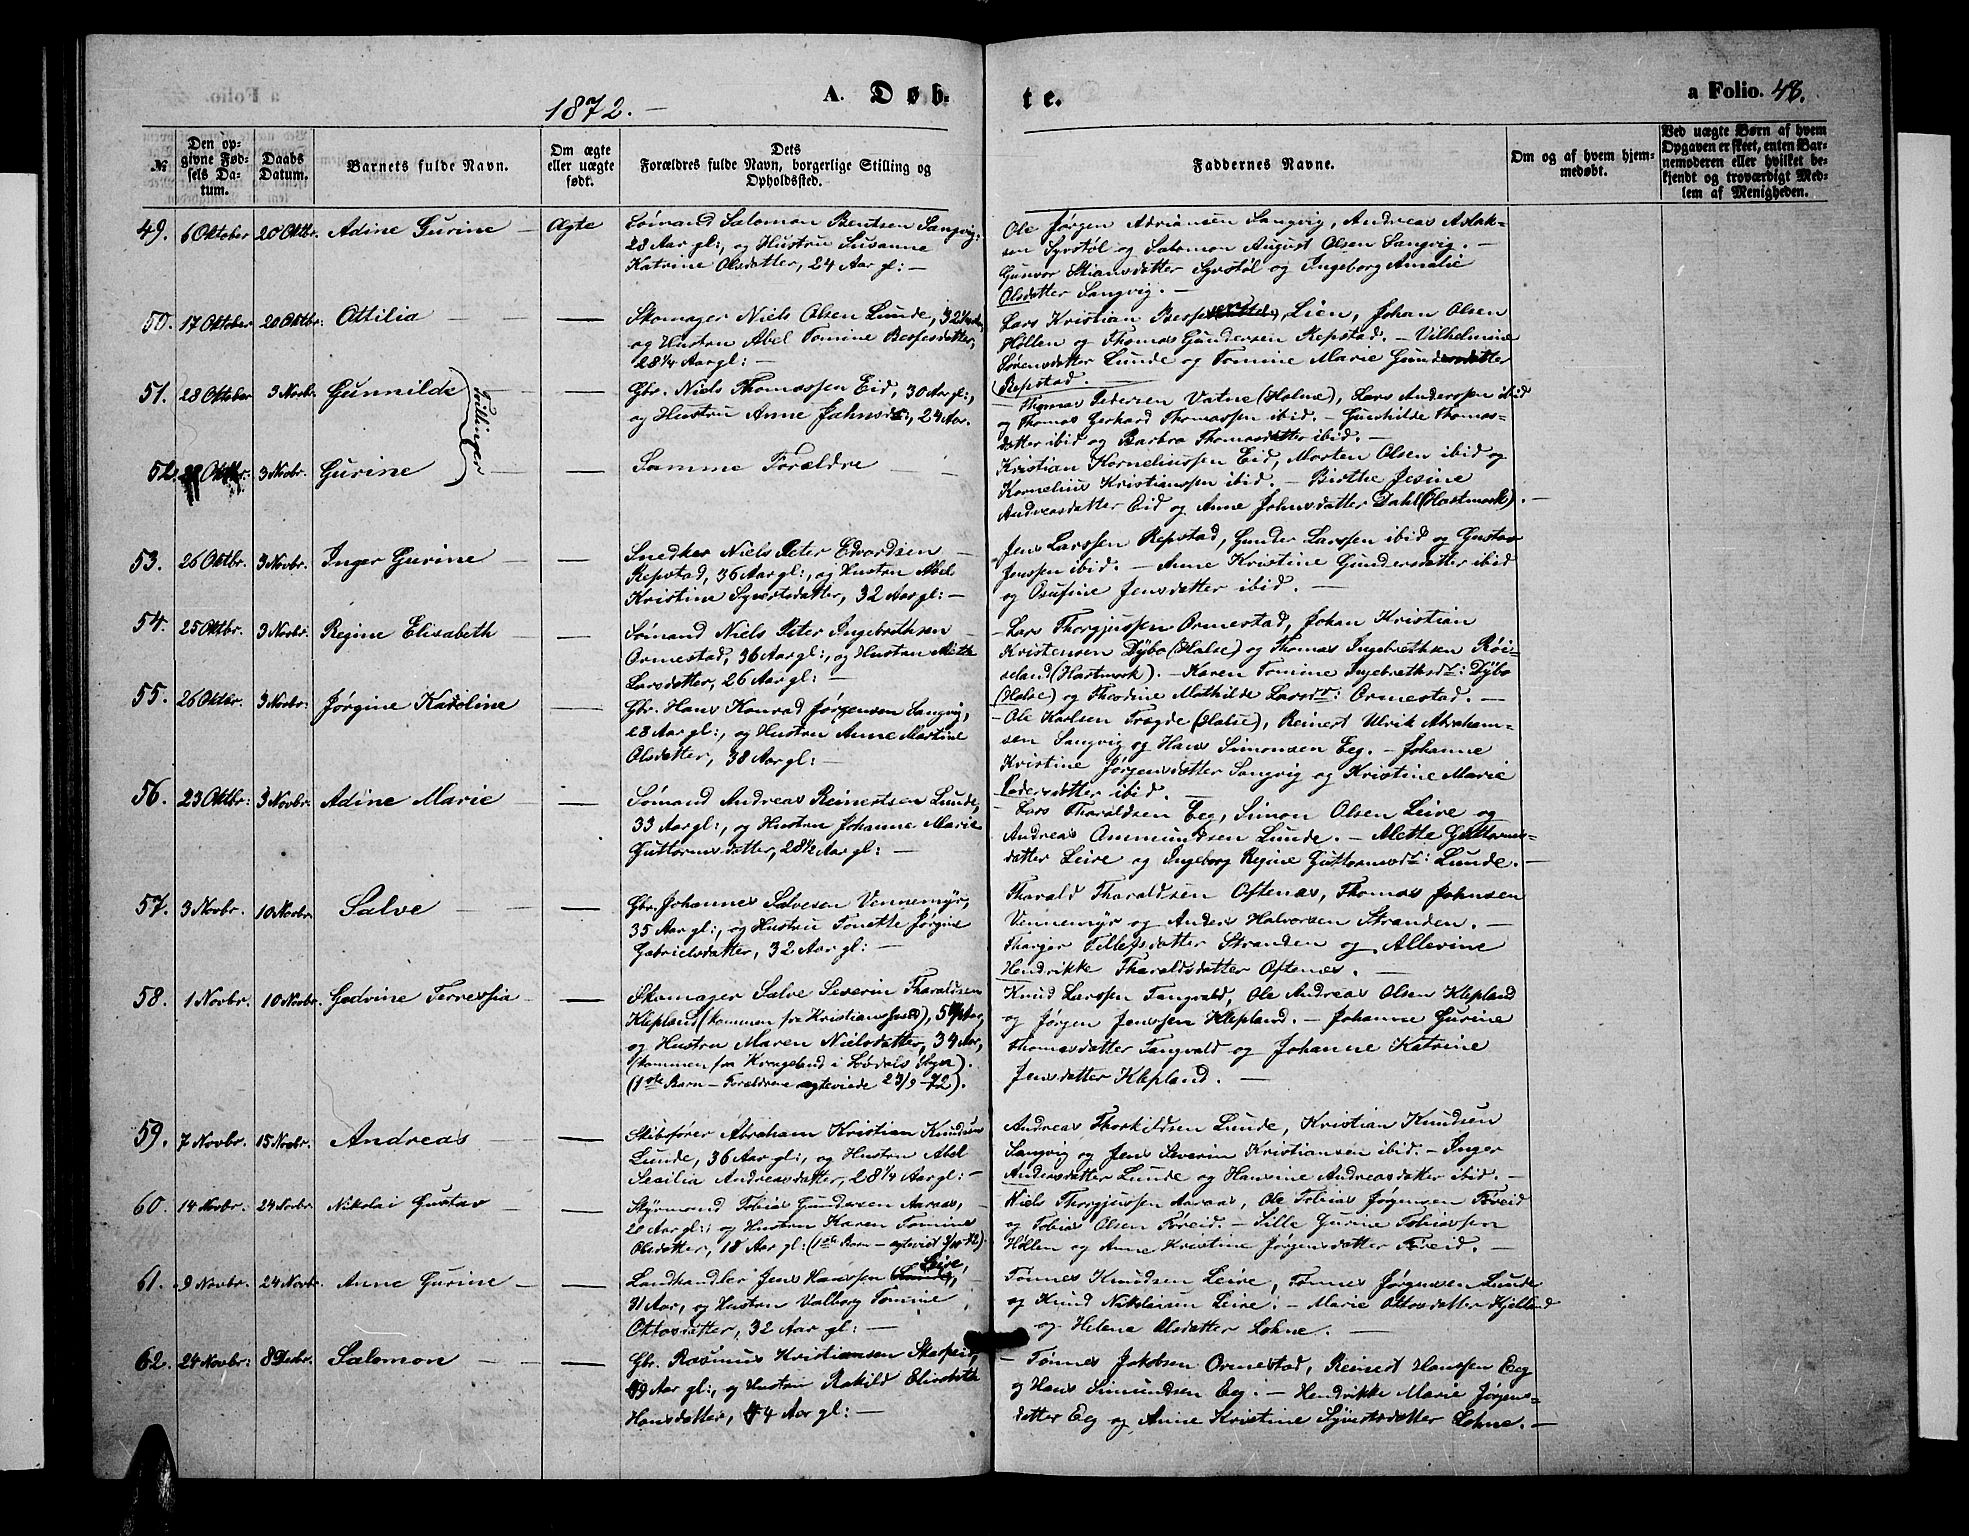 1872. –
A. Døb-
te.
a Folio. 48.
№
Den opgivne Fødsels Datum.
Daabs Datum.
Barnets fulde Navn.
Om ægte eller uægte født.
Dets Forældres fulde Navn, borgerlige Stilling og Opholdssted.
Faddernes Navne.
Om og af hvem hjemmedøbt.
Ved uægte Børn af hvem Opgaven er skeet, enten Barnemoderen eller hvilket bekjendt og troværdigt Medlem af Menigheden.
49. 6 Oktober 20 Oktbr. Adine Gurine – Ægte
Sømand Salomon Bentsen Sangvig,
28 Aar gl:, og Hustru Susanne
Katrine Olsdatter, 24 Aar gl: –
Ole Jørgen Adriansen Sangvig, Andreas Aslak-
sen Syrstøl og Salomon August Olsen Sangvig. –
Gunvor Stiansdatter Syrstøl og Ingeborg Amalie
Olsdatter Sangvig. –
50. 17 Oktober 20 Oktbr: Attilia – –
Skomager Niels Olsen Lunde, 32 Aar,
og Hustru Abel Tomine Bespesdatter,
28 1/4 Aar gl: –
Lars Kristian Lien, Johan Olsen
Høllen og Thomas Gundersen Repstad. – Vilhelmine
Sørensdatter Lunde og Tomine Marie Gundersdatter
Repstad.
51. 28 Oktober 3 Novbr. Gunnilde – Tvillinger
Gbr. Niels Thomassen Eid, 30 Aar gl:,
og Hustru Anne Jahnsd:, 24 Aar.
– Thomas Pedersen Vatne (Holme), Lars Anderssen ibid
og Thomas Gerhard Thomassen ibid. – Gunhilde Thomas-
datter ibid og Barbra Thomasdatter ibid. –
52. 28 Oktbr: 3 Novbr. Gurine –
Samme Forældre
Kristian Korneliussen Eid, Morten Olsen ibid og
Kornelius Kristianssen ibid. – Birthe Jesine
Andreasdatter Eid og Anne Johnsdatter Dahl (Hartmark). –
53. 26 Oktbr. 3 Novbr. Inger Gurine –
Snedker Niels Peter Edvardsen
Repstad, 36 Aar gl:, og Hustru Abel
Kristine Syvertsdatter, 32 Aar gl: –
Jens Larssen Repstad, Gunder Larssen ibid og Gustav
Jenssen ibid. – Anne Kristine Gundersdatter ibid
og Osufine Jensdatter ibid. –
54. 25 Oktbr. 3 Novbr. Regine Elisabeth –
Sømand Niels Peter Ingebrethsen
Ormestad, 36 Aar gl:, og Hustru Mette
Larsdatter, 26 Aar gl: –
– Lars Thorgjussen Ormestad, Johan Kristian
Kristensen Dybo (Halse) og Thomas Ingebrethsen Røi-
seland (Hartmark). – Karen Tomine Ingebrethsdr: Dybo
(Halse) og Theodine Mathilde Larsdr: Ormestad. –
55. 26 Oktbr. 3 Novbr: Jørgine Karoline –
Gbr. Hans Konrad Jørgensen Sangvig,
28 Aar gl:, og Hustru Anne Martine
Olsdatter, 38 Aar gl: –
– Ole Karlsen Trægde (Halse), Reinert Ulrik Abraham-
sen Sangvig og Hans Simonsen Eeg. – Johanne
Kristine Jørgensdatter Sangvig og Kristine Marie
Pedersdatter ibid. –
56. 23 Oktbr: 3 Novbr. Adine Marie –
Sømand Andreas Reinertsen Lunde,
33 Aar gl:, og Hustru Johanne Marie
Guttormsdatter, 28 1/2 Aar gl: –
– Lars Tharaldsen Eeg, Simon Olsen Leire og
Andreas Ommundsen Lunde. – Alette Guttorms-
datter Leire og Ingeborg Regine Guttormsdr: Lunde. –
57. 3 Novbr. 10 Novbr. Salve –
Gbr. Johannes Salvesen Vennemyr,
35 Aar gl:, og Hustru Tonette Jørgine
Gabrielsdatter, 32 Aar gl: –
Tharald Tharaldsen Oftenæs, Thomas Johnsen
Vennemyr og Anders Halvorsen Stranden. –
Tharger Tellefsdatter Stranden og Allevine
Hendrikke Tharaldsdatter Oftenæs. –
58. 1 Novbr. 10 Novbr. Godvine Terressia –
Skomager Salve Severin Tharaldsen
Klepland (kommen fra Kristianssand), Aar,
og Hustru Maren Nielsdatter, 34 Aar,
(kommen fra i Løvdals Sogn).
(1ste Barn – Forældrene ægteviede 27/9 – 72).
Knud Larssen Tangvald, Ole Andreas Olsen Klepland
og Jørgen Jenssen Klepland. – Johanne Gurine
Thomasdatter Tangvald og Johanne Katrine
Jensdatter Klepland. –
59. 7 Novbr. 15 Novbr. Andreas –
Skibsfører Abraham Kristian Knudsen
Lunde, 36 Aar gl:, og Hustru Abel
Sesilia Andreasdatter, 28 1/4 Aar gl: –
Andreas Thorkildsen Lunde, Kristian Knudsen
Sangvig og Jens Severin Kristiansen ibid. – Inger
Andersdatter Lunde og Hansine Andreasdatter ibid. –
60. 14 Novbr. 24 Novbr. Nikolai Gustav –
Styrmand Tobias Gundersen Aaraas,
20 Aar gl:, og Hustru Karen Tomine
Olsdatter, 18 Aar gl: (1ste Barn – ægteviet 3/10 – 72).
Niels Thorgjussen Aaraas, Ole Tobias Jørgensen Foreid
og Tobias Olsen Foreid. – Sille Gurine Tobiassen
Høllen og Anne Kristine Jørgensdatter Foreid. –
61. 9 Novbr. 24 Novbr. Anne Gurine –
Landhandler Jens Hanssen Lunde, Leire,
31 Aar, og Hustru Valborg Tomine
Ottosdatter, 32 Aar gl: –
Tønnes Knudsen Leire, Tønnes Jørgensen Lunde
og Knud Nikolaisen Leire. – Marie Ottosdatter Kjelland
og Helene Olsdatter Lohne. –
62. 24 Novbr: 8 Decbr. Salomon –
Gbr. Rasmus Kristiansen Skarpeid,
49 Aar gl:, og Hustru Rakild Elisabeth
Hansdatter, 44 Aar gl: –
– Tønnes Jakobsen Ormestad, Reinert Hanssen Eeg
og Hans Simundsen Eeg. – Hendrikke Marie Jørgens-
datter Eeg og Anne Kristine Syvertsdatter Lohne. –